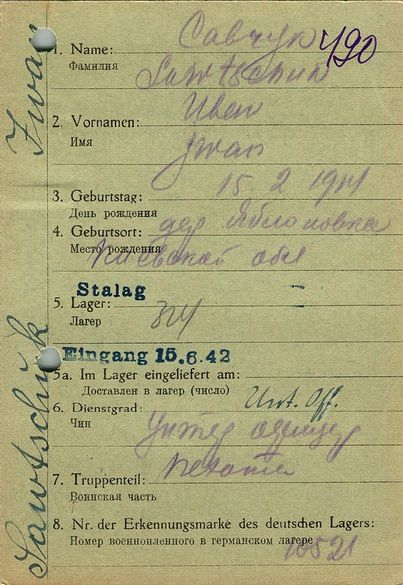 1. Name: Савчук 490
Фамилия Sawtschuk
Иван
2. Vornamen:
Имя Iwan
3. Geburtstag: 15. 2 1911
День рождения
4. Geburtsort: дер Яблоновка
Место рождения Киевской обл
Stalag
5. Lager:
Лагер
Eingang 15.6.42
5a. Im Lager eingeliefert am:
Доставлен в лагер (число)
6. Dienstgrad: Unt. Off.
Чин Унтер офицер
7. Truppenteil: пехота
Воинская часть
8. Nr. der Erkennungsmarke des deutschen Lagers:
Номер военнопленного в германском лагере
10521
Sawtschuk Iwan